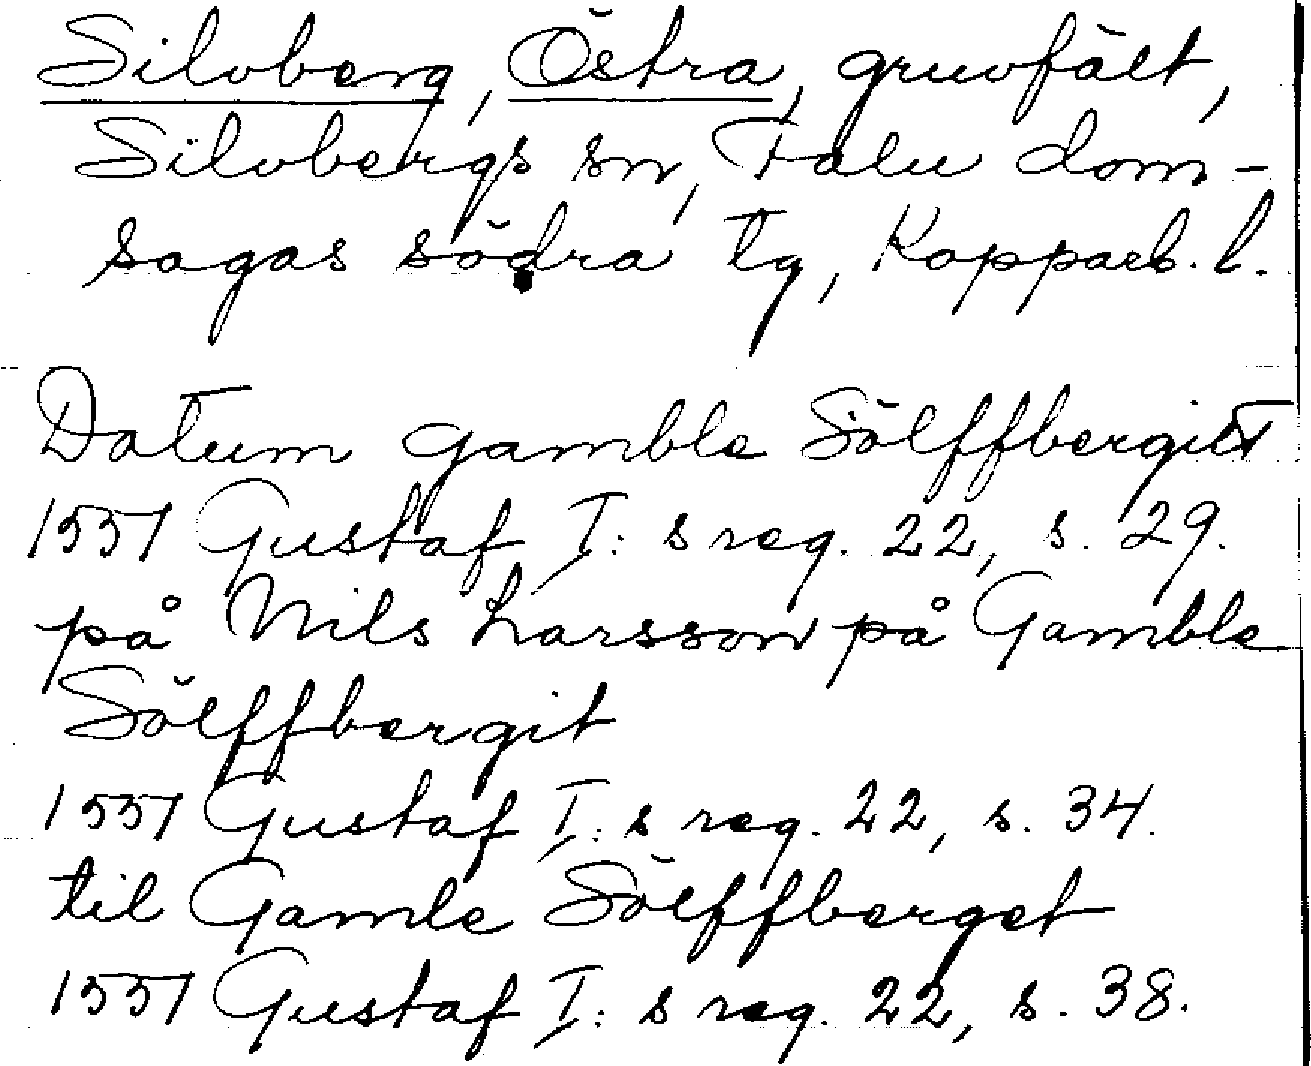 Silvberg, Östra, gruvfält,
Silvbergs sn, Falu dom-
sagas södra tg, Kopparb. l.
Datum gamble Sölffbergitt
1551 Gustaf I:s reg. 22, s. 29.
på Nils Larsson på Gamble
Sölffbergit
1551 Gustaf I:s reg. 22, s. 34.
til Gamle Sölffberget
1551 Gustaf I:s reg. 22, s. 38.